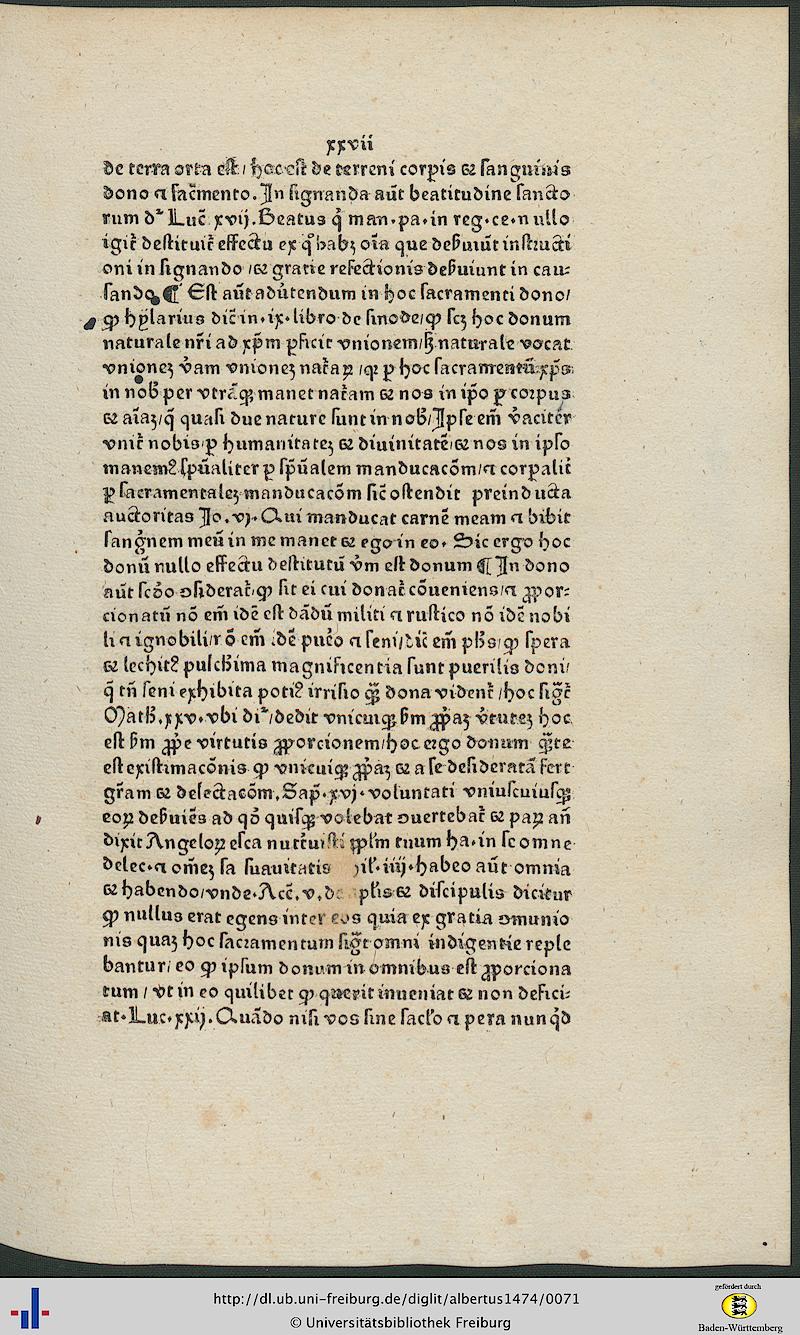 xxvii
de terra orta est / hoc est de terreni corpis ⁊ sanguinis
dono a sac̄mento. In signanda aūt beatitudine sancto
rum dʳ Luc̄ xvij. Beatus q̇ man. pa. in reg. ce. nullo
igit᷑ destituit᷑ effectu ex q̇ habꝫ oīa que debuiūt instructi
oni in signando / ⁊ gratie refectionis debuiunt in cau⸗
sando ¶ Est aūt aduͥtendum in hoc sacramenti dono /
ꝙ hylarius dic̄ in. ix. libro de sinode / ꝙ scꝫ hoc donum
naturale nr̄i ad xp̄m ꝑficit vnionem / sꝫ naturale vocat
vnionez v̄am vnionez nat᷑aꝝ / qꝛ ꝑ hoc sacramentū xp̄s
in nob᷒ per vtrāqꝫ manet nat᷑am ⁊ nos in ip̄o ꝑ corpus
⁊ aīaꝫ / q̄ quasi due nature sunt in nob᷒ / Ipse em̄ v̄aciter
vnit᷑ nobis ꝑ humanitateꝫ ⁊ diuinitatē / ⁊ nos in ipso
manemꝰ sp̄ualiter ꝑ sp̄ualem manducacōm / a corpalit᷑
ꝑ sacramentaleꝫ manducacōm sic̄ ostendit preinducta
auctoritas Jo. vj. Qui manducat carnē meam a bibit
sang̈nem meū in me manet ⁊ ego in eo. Sic ergo hoc
donū nullo effectu destitutū v̄m est donum ¶ In dono
aūt scd̄o ꝯsiderat᷑ / ꝙ sit ei cui donat᷑ cōueniens / a ꝓpor⸗
cionatū nō em̄ idē est dādū militi a rustico nō idē nobi
li a ignobili / nō em̄ idē pueͦo a seni / dic̄ em̄ pl̄s / ꝙ spera
⁊ lechitꝰ pulch̄ima magnificentia sunt puerilis doni /
q̄ tn̄ seni exhibita potiꝰ irrisio qꝫ̄ dona vident᷑ / hoc sig᷑t᷑
Math̄. xxv. vbi diʳ / dedit vnicuiqꝫ s̄m ꝓp̄aꝫ v̄tuteꝫ hoc
est s̄m ꝓp̄e virtutis ꝓporcionem / hoc ergo donum
est existimacōnis ꝙ vnicuiqꝫ ꝓp̄aꝫ ⁊ a se desideratā fert
gr̄am ⁊ delectacōm. Sap̄. xvj. voluntati vniuscuiusqꝫ
eoꝝ debuiēs ad qd̄ quisqꝫ volebat ꝯuertebat᷑ ⁊ paꝝ an̄
dixit Angeloꝝ esca nutriuisti ppl̄m tuum ha. in se omne
delec. a om̄eꝫ sa suauitatis iiij. habeo aūt omnia
⁊ habendo / vnde. Act̄. v. de pl̄is ⁊ discipulis dicitur
ꝙ nullus erat egens inter eos quia ex gratia ꝯmunio
nis quaꝫ hoc sacramentum sig᷑t omni indigentie reple
bantur / eo ꝙ ipsum donum in omnibus est ꝓporciona
tum / vt in eo quilibet ꝙ querit inueniat ⁊ non defici⸗
at. Luc. xxij. Quādo misi vos sine sac̄lo a pera nunqd̄
http://dl.ub.uni-freiburg.de/diglit/albertus1474/0071
© Universitätsbibliothek Freiburg
gefördert durch
Baden-Württemberg